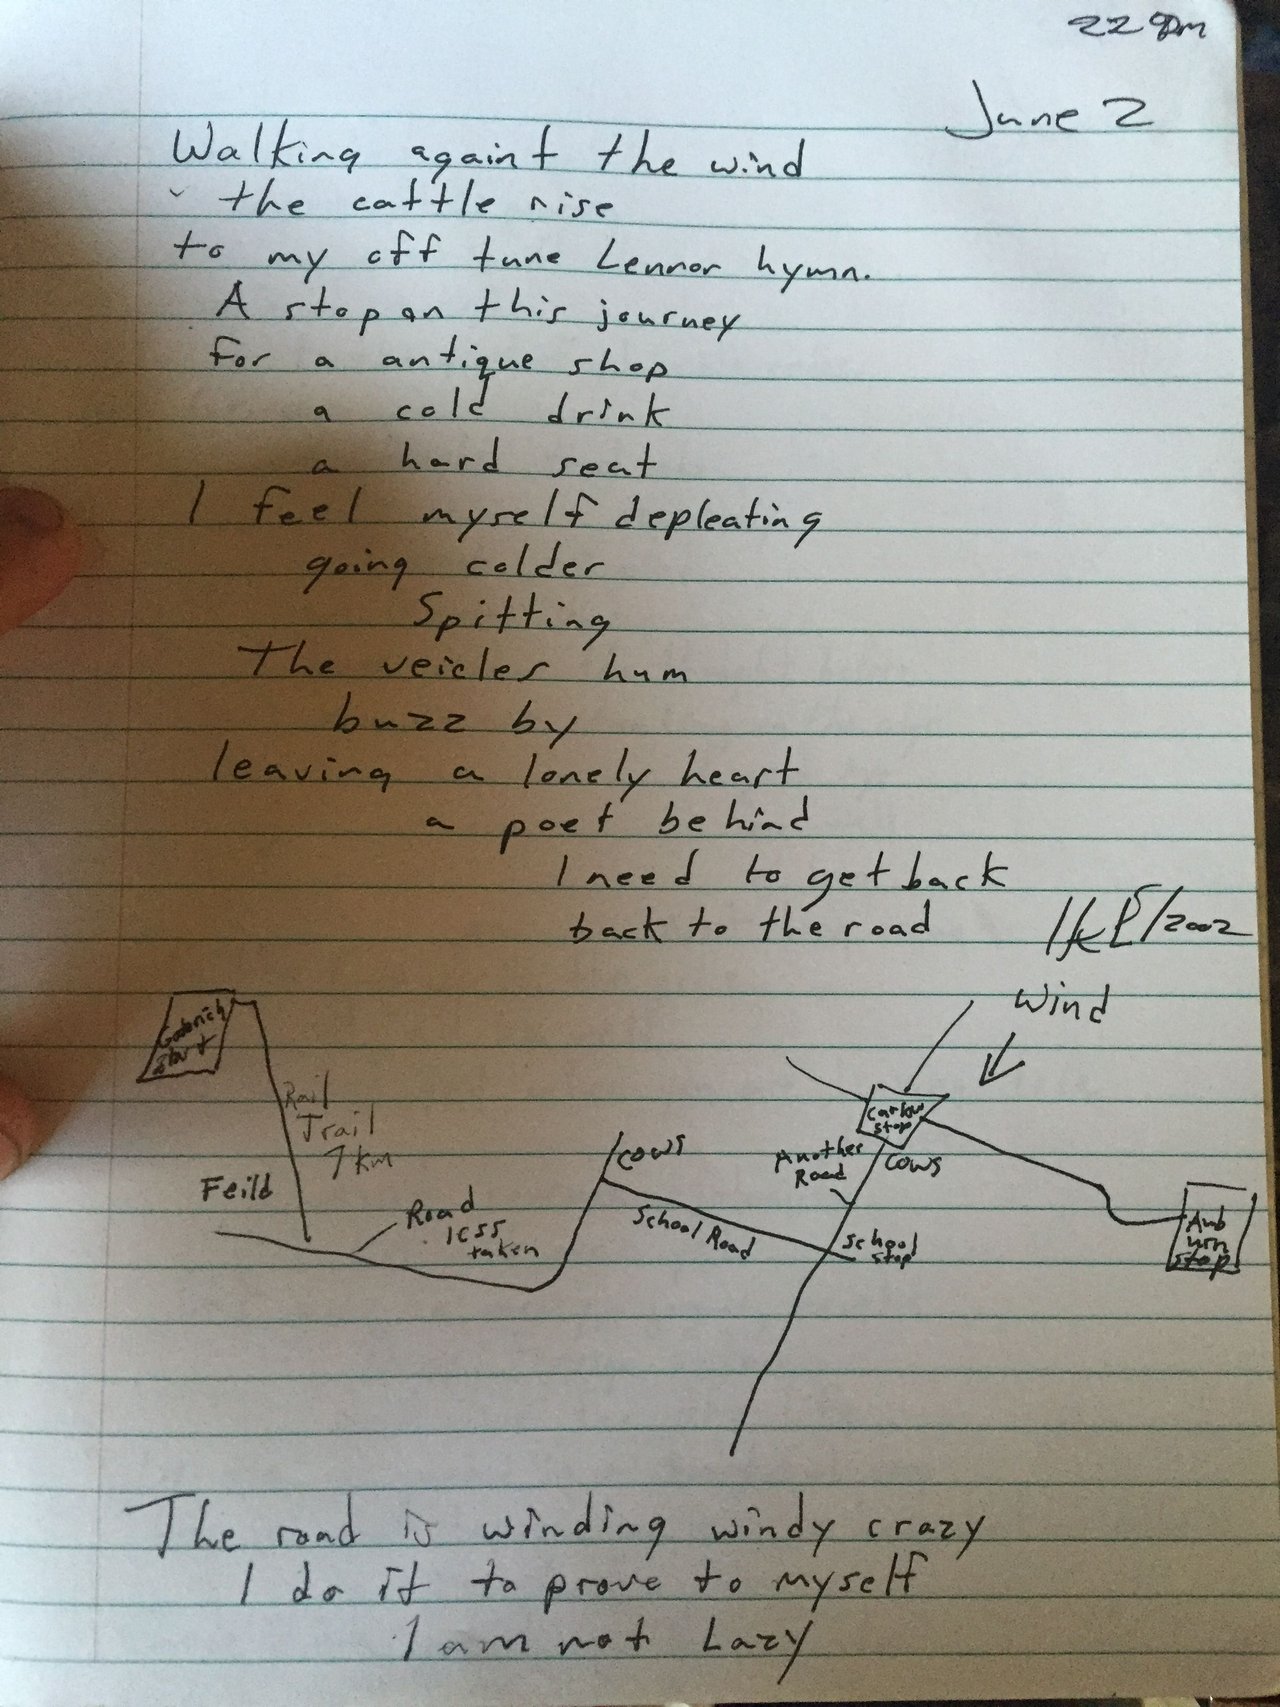 June 2
Walking againt the wind
the cattle rise
to my off tune Lennon hymn.
A stop on this journey
for a antique shop
a cold drink
a hard seat
I feel myself depleating
going colder
Spitting
The veicles hum
buzz by
leaving a lonely heart
a poet behind
I need to get back
back to the road
/2002
Wind
Goderich
start
Rail
Trail
7 km
Feild
Road
less
taken
cows
School Road
Carlow
stop
Another
Road
cows
School
stop
Aub
urn
stop
The road is winding windy crazy
I do it to prove to myself
I am not Lazy